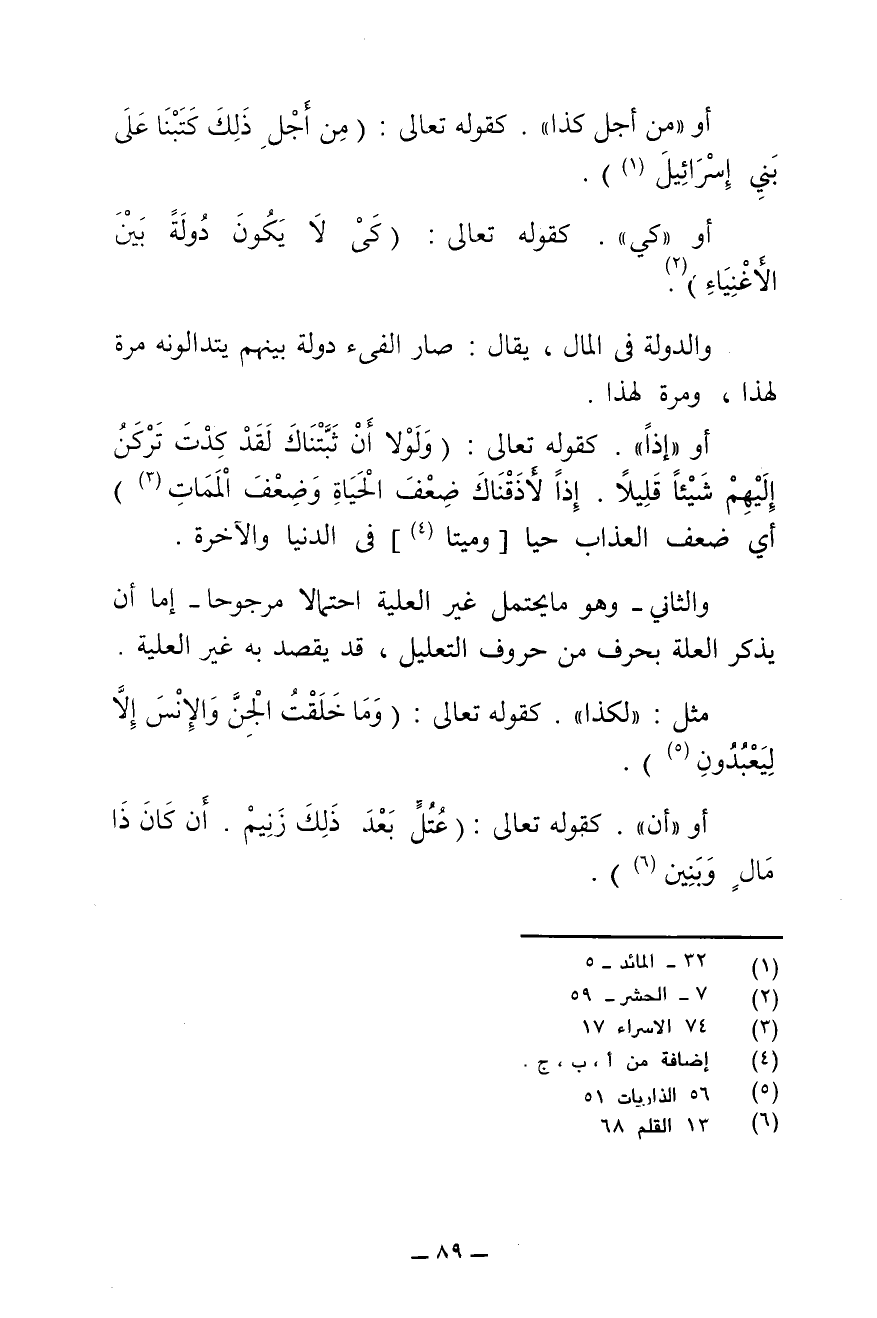 أو «من أجل كذا» . كقوله تعالى : ( مِن أَجْلِ ذَلِكَ كَتَبْنَا عَلَى
بَنِي إِسْرَائِيلَ (١) ) .
أو «كي» . كقوله تعالى : ( كَىْ لَا يَكُونَ دُولَةً بَيْنَ
الأَغْنِيَاءِ )(٢).
والدولة فى المال ، يقال : صار الفىء دولة بينهم يتدالونه مرة
لهذا ، ومرة لهذا .
أو «إذاً» . كقوله تعالى : ( وَلَوْلا أَنْ ثَبَّتْنَاكَ لَقَدْ كِدْتَ تَرْكَنُ
إِلَيْهِمْ شَيْئاً قَلِيلاً . إِذاً لأَذَقْنَاكَ ضِعْفَ الْحَيَاةِ وَضِعْفَ الْمَمَاتِ (٣) )
أي ضعف العذاب حيا [ وميتا (٤) ] فى الدنيا والآخرة .
والثاني ـ وهو مايحتمل غير العلية احتمالا مرجوحا ـ إما أن
يذكر العلة بحرف من حروف التعليل ، قد يقصد به غير العلية .
مثل : «لكذا» . كقوله تعالى : ( وَمَا خَلَقْتُ الْجِنَّ وَالإِنْسَ إِلَّا
لِيَعْبُدُونِ (٥) ) .
أو «أن» . كقوله تعالى : ( عُتُلٍّ بَعْدَ ذَلِكَ زَنِيمْ . أَن كَانَ ذَا
مَالٍ وَبَنِين (٦) ) .
(١) ٣٢ ـ المائد ـ ٥
(٢) ٧ ـ الحشر ـ ٥٩
(٣) ٧٤ الاسراء ١٧
(٤) إضافة من أ ، ب ، ج .
(٥) ٥٦ الذاريات ٥١
(٦) ١٣ القلم ٦٨
ـ ٨٩ ـ